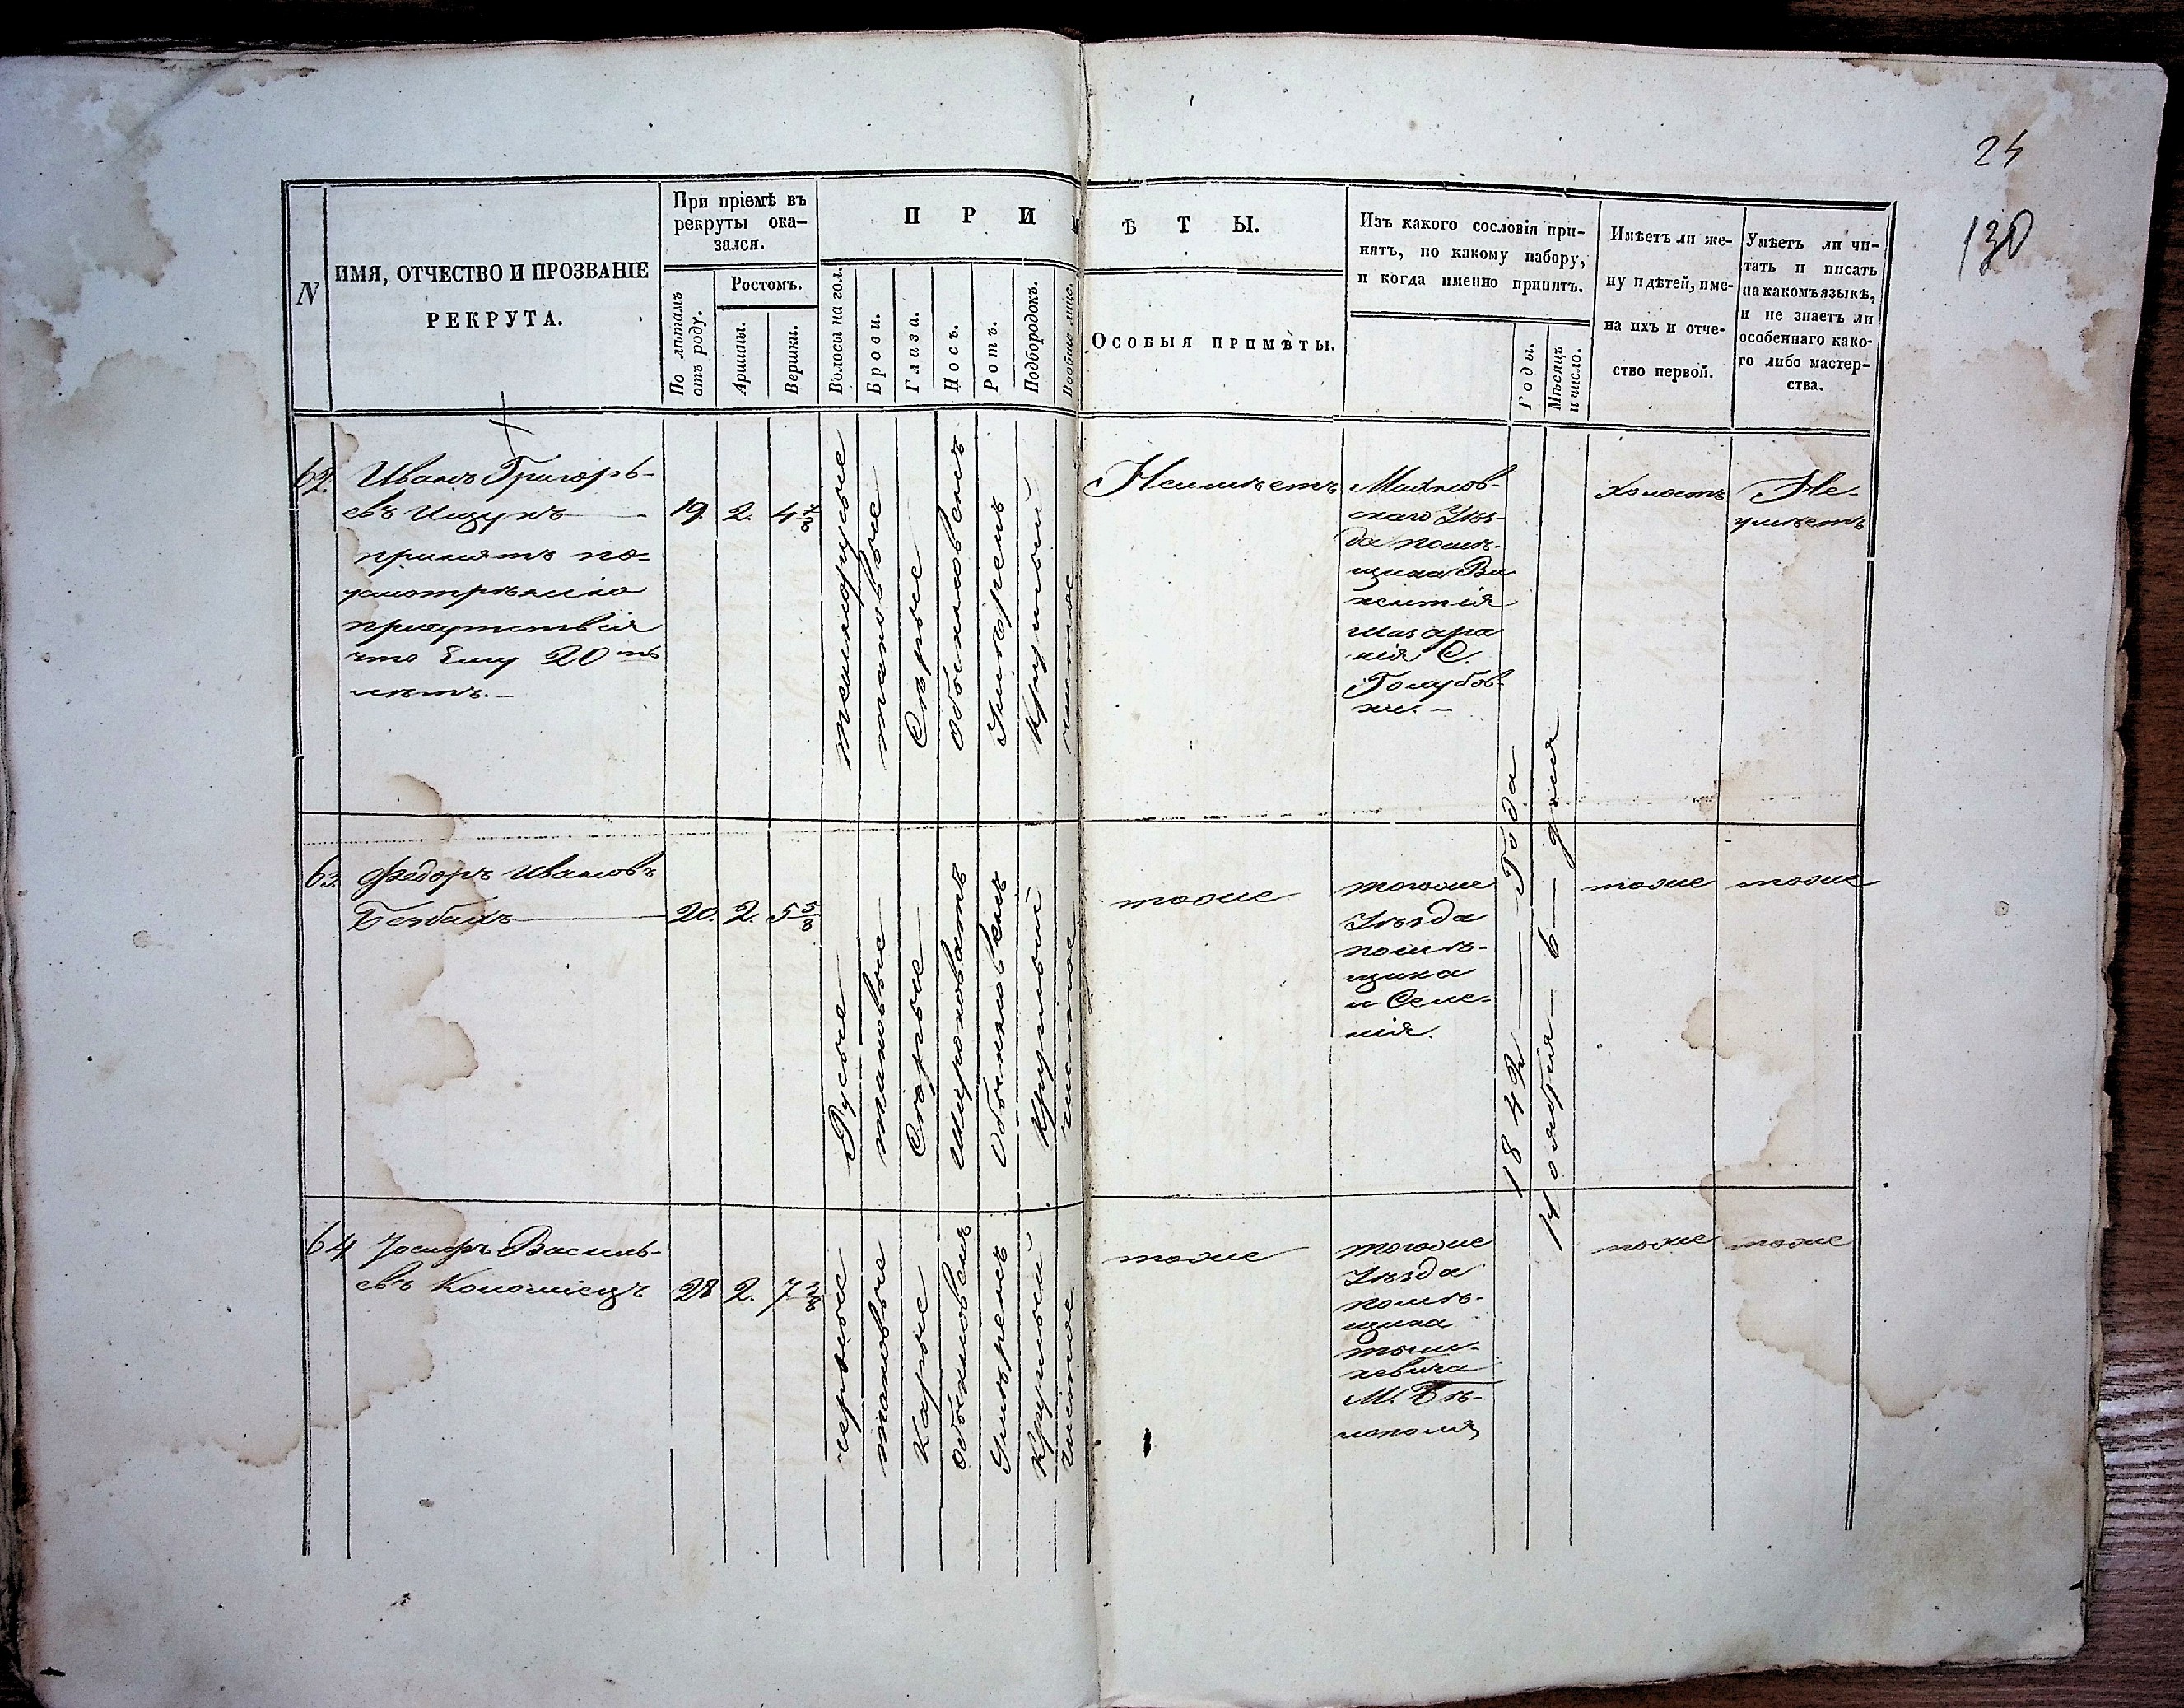 24
130
N
ИМЯ, ОТЧЕСТВО И ПРОЗВАНІЕ
РЕКРУТА.
При пріемѣ въ
рекруты ока-
зался.
По лѣтамъ
отъ роду.
Ростомъ.
Аршины.
Вершки.
П Р И М Ѣ Т Ы.
Волосы на гол.
Брови.
Глаза.
Носъ.
Ротъ.
Подбородокъ.
Вообще лице.
Особыя примѣты.
Изъ какого сословія при-
нятъ, по какому набору,
и когда именно принятъ.
Годы.
Мѣсяцъ
и число.
Имѣетъ ли же-
ну и дѣтей, име-
на ихъ и отче-
ство первой.
Умѣетъ ли чи-
тать и писать
на какомъ языкѣ,
и не знаетъ ли
особеннаго како-
го либо мастер-
ства.
62.
Иванъ Григорь-
евъ Ищукъ
принятъ по
усмотрѣнію
присутствія
что ему 20ть
лѣтъ.
19. 2. 4 7/8
темнорусые
таковые
Сѣрые
обыкновенъ
Умѣренъ
Круглый
чистое
Неимѣетъ
скаго Уѣз-
да помѣ-
щика Ви
кентія
С.
Голубов-
ки.
холостъ
Не-
умѣетъ
63.
Федоръ Ивановъ
20. 2. 5 5/8
Русые
таковые
Сѣрые
Широковатъ
Обыкновенъ
Круглый
чистое
тоже
тогоже
Уѣзда
помѣ-
щика
и Селе-
нія.
тоже
тоже
64
Іосифъ Василь-
евъ Коломіецъ
28 2. 7 3/8
черные
таковые
Каріе
обыкновенъ
Умѣренъ
Круглый
чистое
тоже
тогоже
Уѣзда
помѣ-
щика
тыш-
кевича
М. Бѣ-
лополя
тоже
тоже
1842 Года
Ноября 6 дня